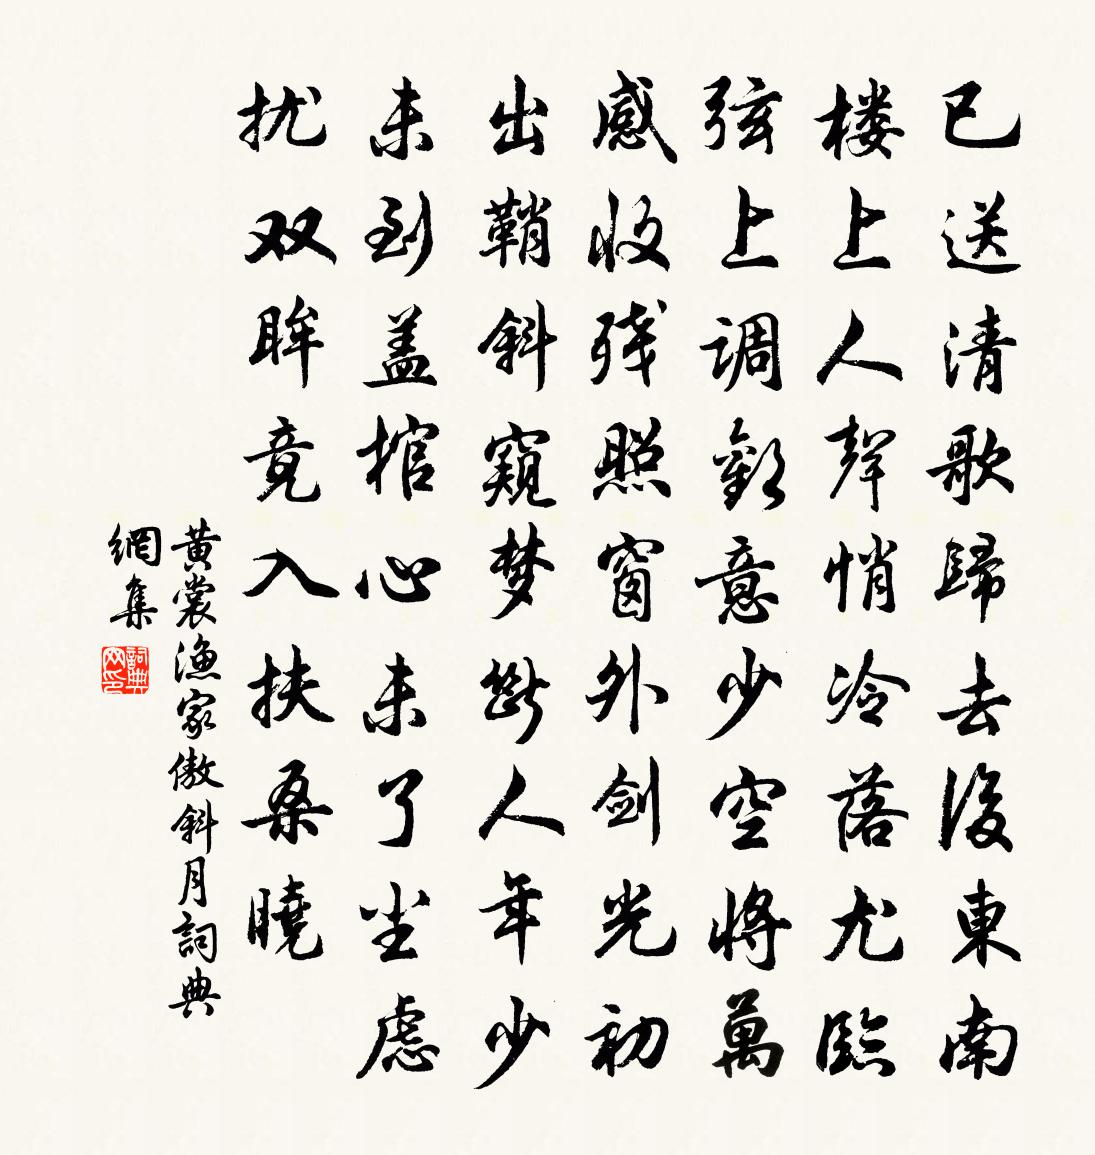 已送清歌歸去後東南
楼上人聲悄冷落尤臨
弦上调歡意少空將萬
感收残照窗外剑光初
出鞘斜窺梦斷人年少
未到盖棺心未了尘慮
扰双眸竟入扶桑曉
黃裳漁家傲斜月詞典
網集
詞典网印